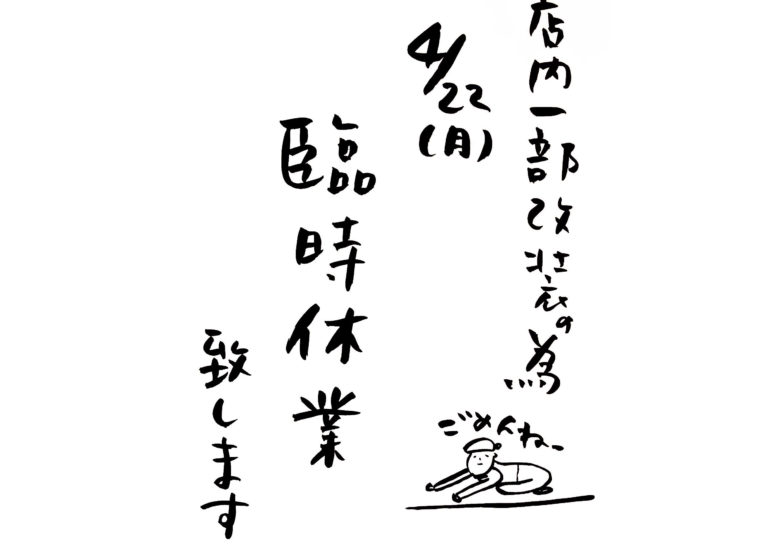 店内一部改装の為
4/22
(月)
臨時休業
致します
ごめんね〜